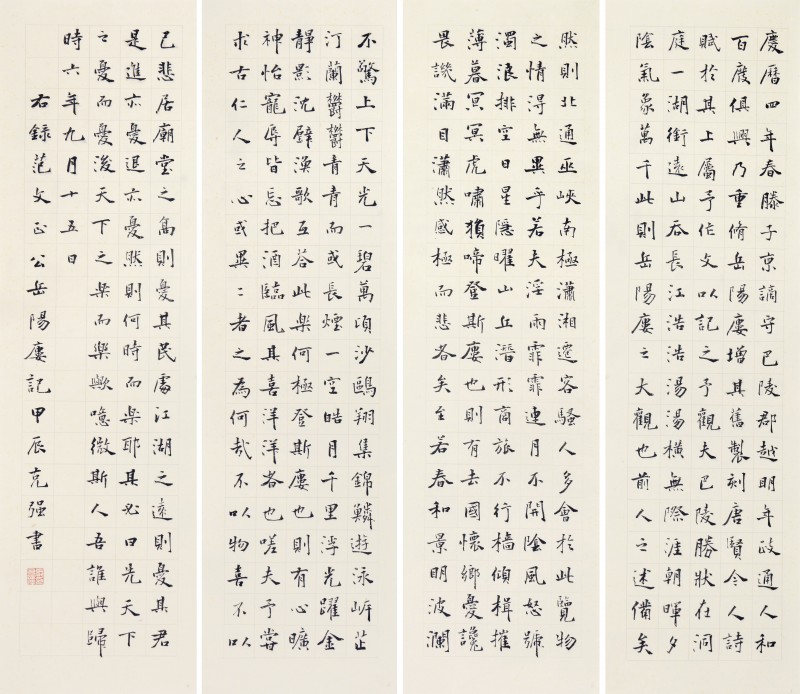 慶曆四年春滕子京謫守巴陵郡越明年政通人和
百廢俱興乃重脩岳陽樓增其舊製刻唐賢今人詩
賦於其上屬予作文以記之予觀夫巴陵勝狀在洞
庭一湖銜遠山吞長江浩浩湯湯橫無際涯朝暉夕
陰氣象萬千此則岳陽樓之大觀也前人之述備矣
然則北通巫峽南極瀟湘遷客騷人多會於此覽物
之情得無異乎若夫淫雨霏霏連月不開陰風怒號
濁浪排空日星隱曜山丘潛形商旅不行檣傾楫摧
薄暮冥冥虎嘯猿啼登斯樓也則有去國懷鄉憂讒
畏譏滿目瀟然感極而悲者矣至若春和景明波瀾
不驚上下天光一碧萬頃沙鷗翔集錦鱗遊泳岍芷
汀蘭鬱鬱青青而或長煙一空皓月千里浮光躍金
靜影沈璧漁歌互答此樂何極登斯樓也則有心曠
神怡寵辱皆忘把酒臨風其喜洋洋者也嗟夫予嘗
求古仁人之心或異二者之為何哉不以物喜不以
己悲居廟堂之高則憂其民處江湖之遠則憂其君
是進亦憂退亦憂然則何時而樂耶其必曰先天下
之憂而憂後天下之樂而樂歟噫微斯人吾誰與歸
時六年九月十五日
右錄范文正公岳陽樓記甲辰克强書